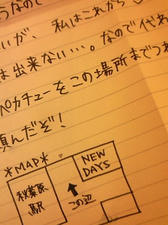 うなので
いが、私はこれから
は出来ない…。なので代わ
ペカチューをこの場所までつ
頼んだぞ!
*MAP*
秋葉原
駅
NEW
DAYS
この辺